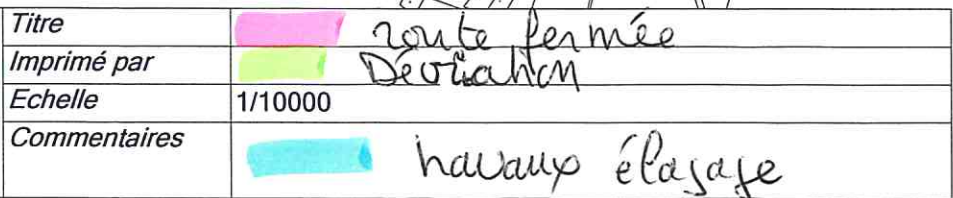 Titre route fermée
Imprimé par Déviation
Echelle 1/10000
Commentaires travaux élagage